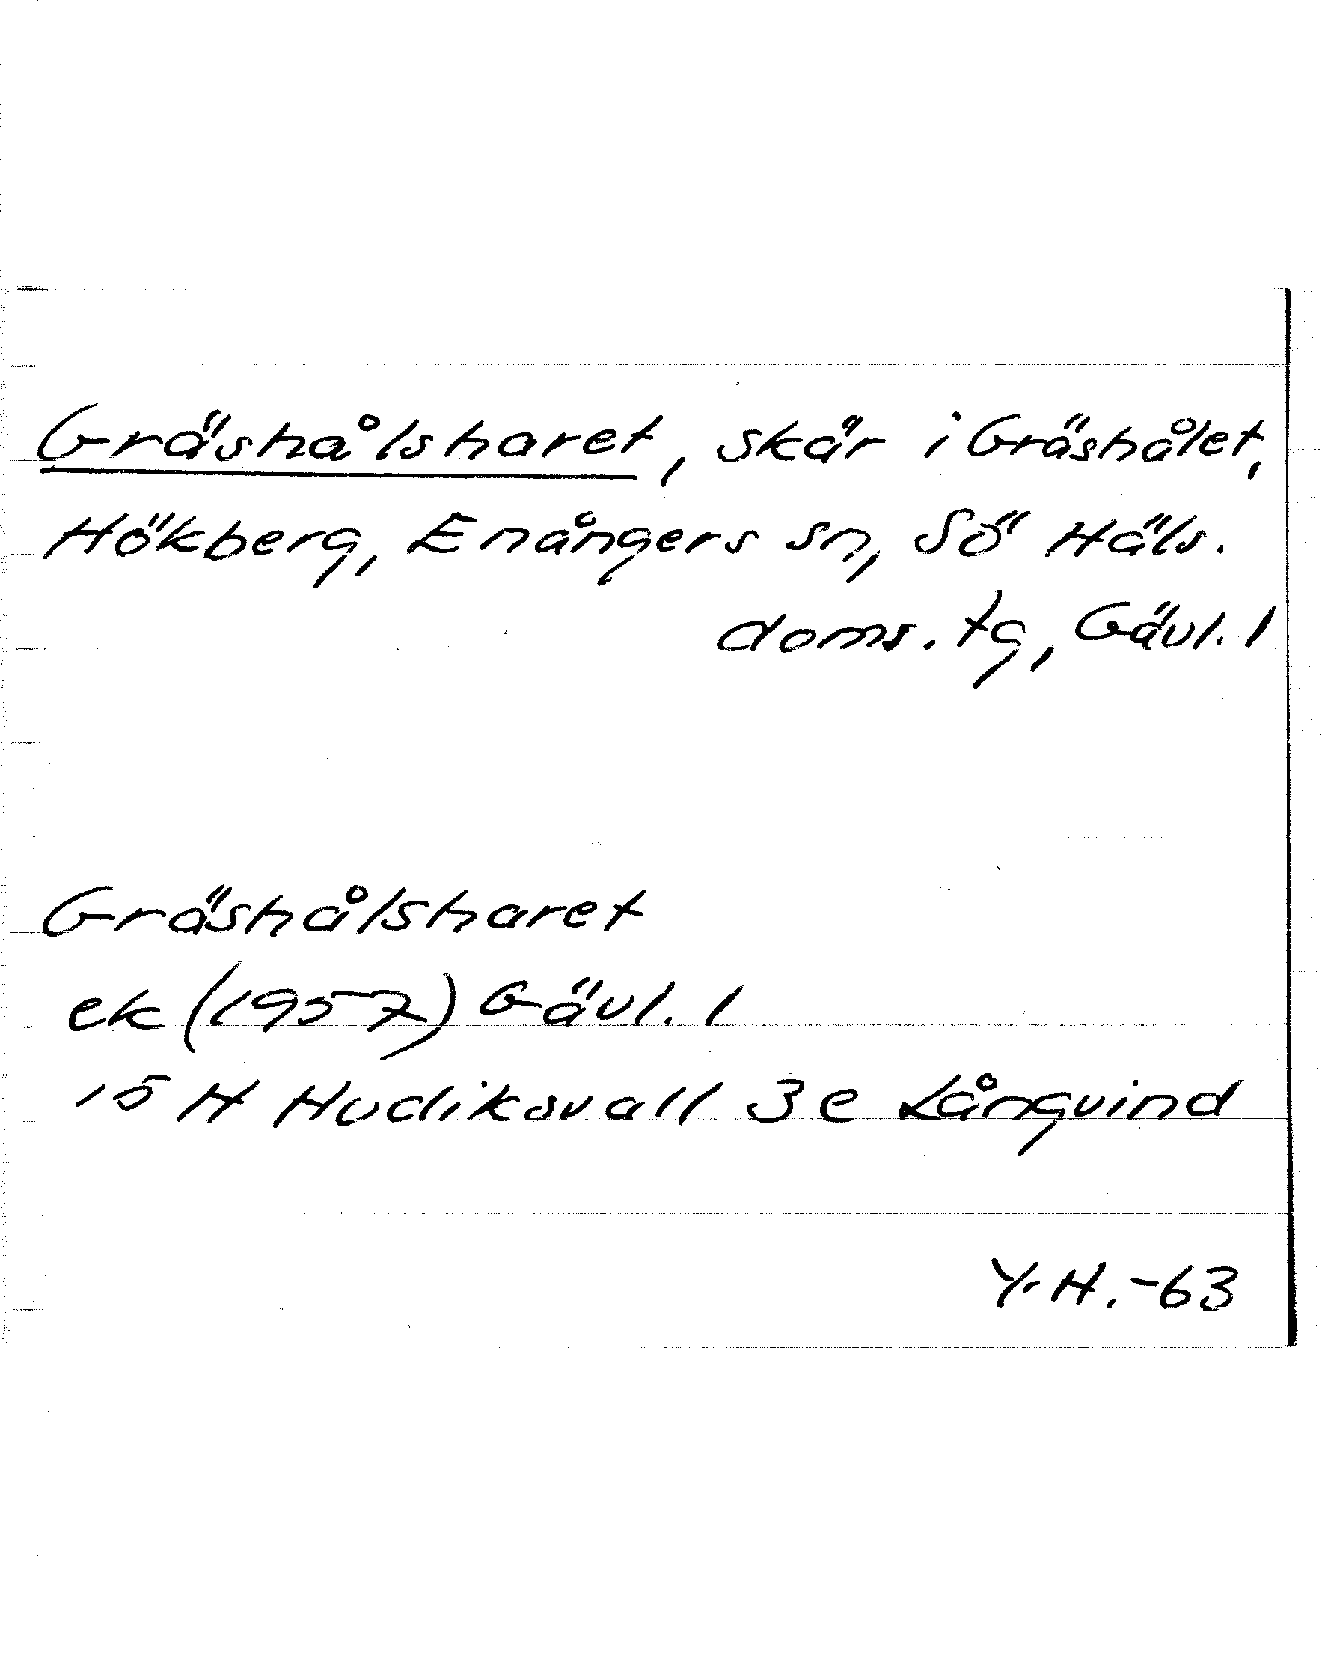 Gräshålsharet, skär i Gräshålet,
Hökberg, Enångers sn, Sö Häls.
doms. tg, Gävl. l
Gräshålsharet
ek (1957) Gävl. l
15 H Hudiksvall 3e Långvind
Y.H.-63